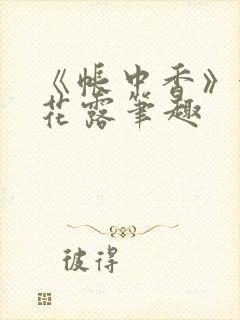 《帐中香》
花露笔趣
彼得